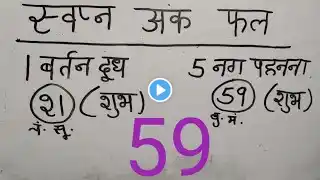 स्वप्न अंक फल
1 बर्तन दूध 5 नग पहनना
21 (शुभ) 59 (शुभ)
चं. सू. बु. मं.
59